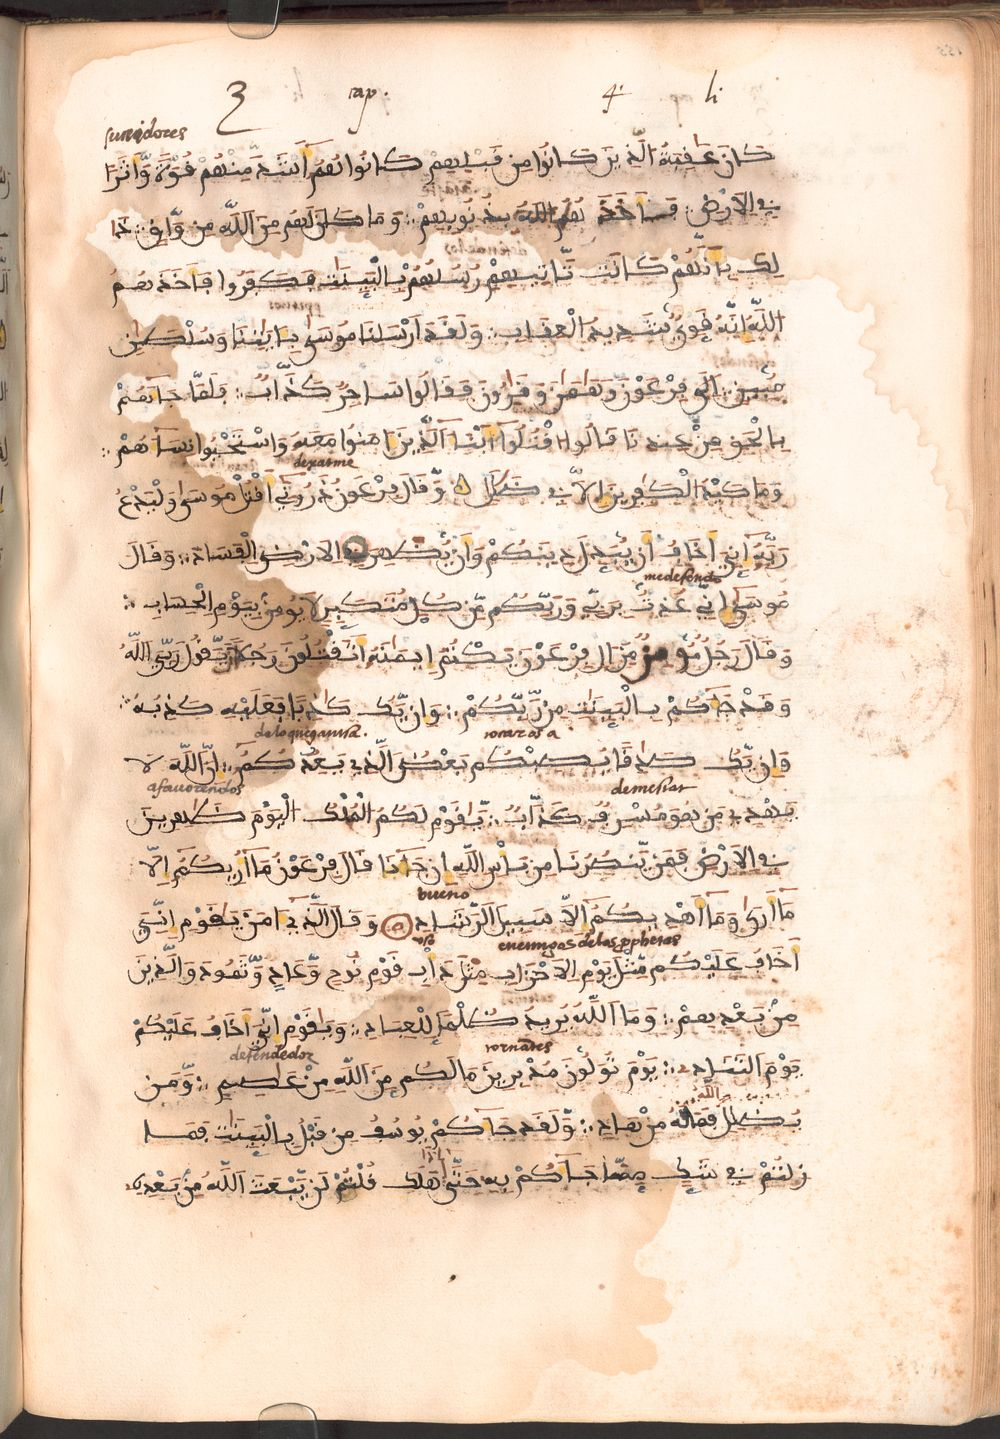 3 cap. 4 li
كَانَ عَٰقِبَةُ الَّذِينَ كَانُوا مِن قَبْلِهِمْ كَانُوا هُمُ أَشَدَّ مِنْهُمْ قُوَّةً وَّءَاثَارًا
فِي الَارْضِ فَأَخَذَهُمُ اللَّهُ بِذُنُوبِهِمْ وَمَا كَانَ لَهُم مِّنَ اللَّهِ مِن وَّاقٍ ذَا
لِكَ بِأَنَّهُمْ كَانَت تَّاتِيهِمْ رُسُلُهُمْ بِالْبَيِّنَٰتِ فَكَفَرُوا فَأَخَذَهُمُ
اللَّهُ إِنَّهُ قَوِيٌّ شَدِيدُ الْعِقَابِ وَلَقَدَ ارْسَلْنَا مُوسَىٰ بِـَٔايَٰتِنَا وَسُلْطَٰنٍ
مُّبِينٍ إِلَىٰ فِرْعَوْنَ وَهَٰمَٰنَ وَقَٰرُونَ فَقَالُوا سَٰحِرٌ كَذَّابٌ فَلَمَّا جَآءَهُمْ
بِالْحَقِّ مِنْ عِندِنَا قَالُوا اقْتُلُوا أَبْنَآءَ الَّذِينَ ءَامَنُوا مَعَهُ وَاسْتَحْيُوا نِسَآءَهُمْ
dexarme
وَمَا كَيْدُ الْكَٰفِرِينَ إِلَّا فِي ضَلَٰلٍ وَّقَالَ فِرْعَوْنُ ذَرُونِي أَقْتُلْ مُوسَىٰ وَلْيَدْعُ
رَبَّهُ إِنِّيَ أَخَافُ أَن يُّبَدِّلَ دِينَكُمْ وَأَنْ يُّظْهِرَ فِي الَارْضِ الْفَسَادَ وَقَالَ
me defendo
مُوسَىٰ إِنِّي عُذْتُ بِرَبِّي وَرَبِّكُم مِّن كُلِّ مُتَكَبِّرٍ لَّا يُومِنُ بِيَوْمِ الْحِسَابِ
وَقَالَ رَجُلٌ مُّومِنٌ مِّنَ الِ فِرْعَوْنَ يَكْتُمُ إِيمَٰنَهُ أَتَقْتُلُونَ رَجُلًا أَن يَّقُولَ رَبِّيَ اللَّهُ
وَقَدْ جَآءَكُمْ بِالْبَيِّنَٰتِ مِن رَّبِّكُمْ وَإِن يَّكُ كَٰذِبًا فَعَلَيْهِ كَذِبُهُ
de lo que gan tra. tocaros a
وَإِن يَّكُ صَادِقًا يُصِبْكُم بَعْضُ الَّذِي يَعِدُكُمُ إِنَّ اللَّهَ لَا
a favorendos demesiat
يَهْدِي مَنْ هُوَ مُسْرِفٌ كَذَّابٌ يَٰقَوْمِ لَكُمُ الْمُلْكُ الْيَوْمَ ظَٰهِرِينَ
فِي الَارْضِ فَمَن يَّنصُرُنَا مِن بَاسِ اللَّهِ إِن جَآءَنَا قَالَ فِرْعَوْنُ مَآ أُرِيكُمُ إِلَّا
bueno
مَآ أَرَىٰ وَمَآ أَهْدِيكُمُ إِلَّا سَبِيلَ الرَّشَادِ وَقَالَ الَّذِي ءَامَنَ يَٰقَوْمِ إِنِّيَ
uso enemigos de los prophetas
أَخَافُ عَلَيْكُم مِّثْلَ يَوْمِ الَاحْزَابِ مِثْلَ دَأْبِ قَوْمِ نُوحٍ وَّعَادٍ وَّثَمُودَ وَالَّذِينَ
مِنْ بَعْدِهِمْ وَمَا اللَّهُ يُرِيدُ ظُلْمًا لِّلْعِبَادِ وَيَٰقَوْمِ إِنِّيَ أَخَافُ عَلَيْكُمْ
defendedor tornades
يَوْمَ التَّنَادِ يَوْمَ تُوَلُّونَ مُدْبِرِينَ مَا لَكُم مِّنَ اللَّهِ مِنْ عَاصِمٍ وَّمَن
اللَّهُ
يُضْلِلِ فَمَا لَهُ مِنْ هَادٍ وَّلَقَدْ جَآءَكُمْ يُوسُفُ مِن قَبْلُ بِالْبَيِّنَٰتِ فَمَا
زِلْتُمْ فِي شَكٍّ مِّمَّا جَآءَكُمْ بِهِ حَتَّىٰ إِذَا هَلَكَ قُلْتُمْ لَن يَّبْعَثَ اللَّهُ مِنْ بَعْدِهِ